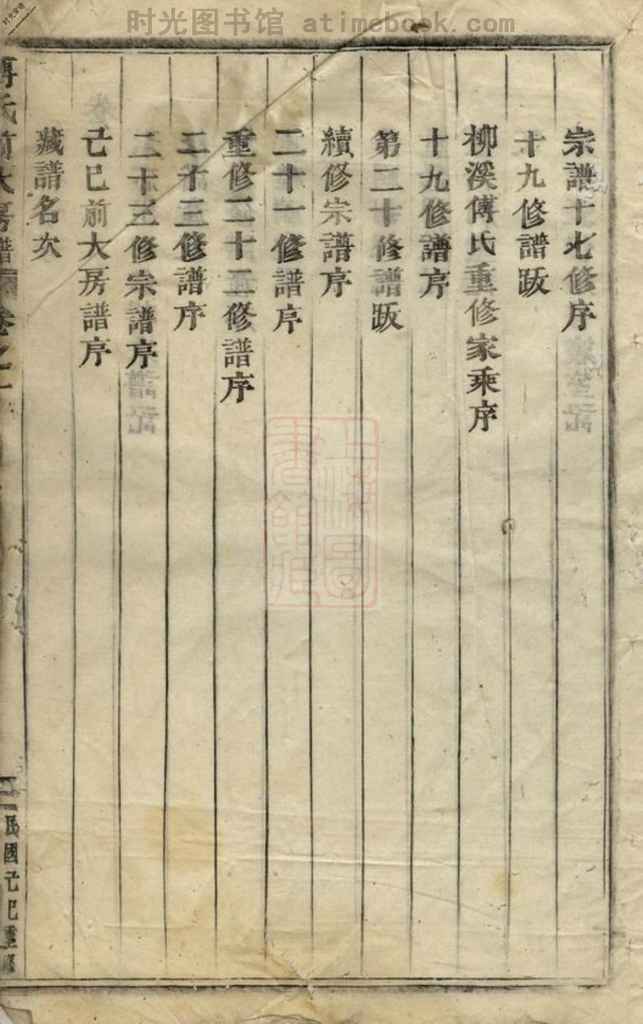 时光图书馆 atimebook.com
宗譜十七修序
十九修譜跋
柳溪傅氏重修家乘序
十九修譜序
第二十修譜跋
續修宗譜序
二十一修譜序
重修二十二修譜序
二十三修譜序
二十三修宗譜序
己巳前大房譜序
藏譜名次
傅氏前大房譜 卷之一
二 民國己巳重修